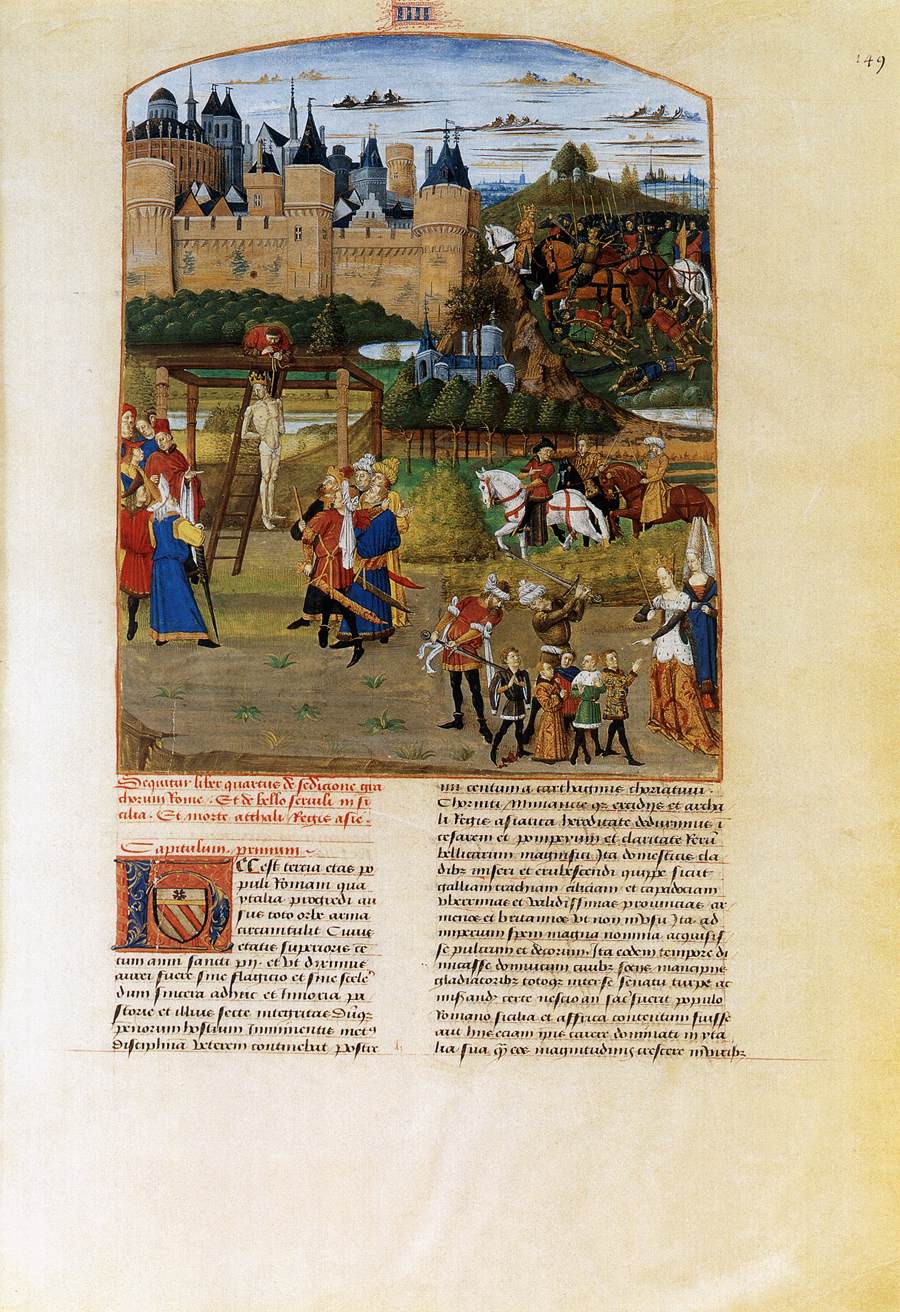 IIII
149
Sequitur liber quartus de sedicione gra
chorum Rome. Et de bello servili in si
cilia. Et morte atthali Regis asie.
Capitulum primum
Ec est tercia etas po
puli Romani qua
ytalia progredi au
sus toto orbe arma
circumtulit Cuius
etatis superioris ce
tum anni sancti pii et ut diximus
aurei fuere sine flagicio et sine scele
dum sincera adhuc et innoxia pa
storie et illius secte integritas
penorum hostium Imminentis met9
disciplina veterem continebat postre
mi centum a carthaginis
Chorinti Numancie excidiis et attha
li Regis asiatica hereditate deduximus i
cesarem et pompeyum et claritate Reru
bellicarum magnifici Ita domesticis cla
dibz miseri et erubescendi quippe sicut
galliam trachiam ciliciam et capadociam
uberrimas et validissimas provincias ar
menos et britannos ut non in usu Ita ad
imperium spem magna nomina acquisis
se pulcrum et decorum. Ita eodem tempore di
micasse domi cum civibz sociis mancipiis
gladiatoribz totoqz inter se senatu turpe ac
certe nescio an sac fuerit populo
Romano sicilia et affrica contentum fuisse
aut hiis eciam ipis carere dominati in yta
lia sua eo magnitudinis crescere